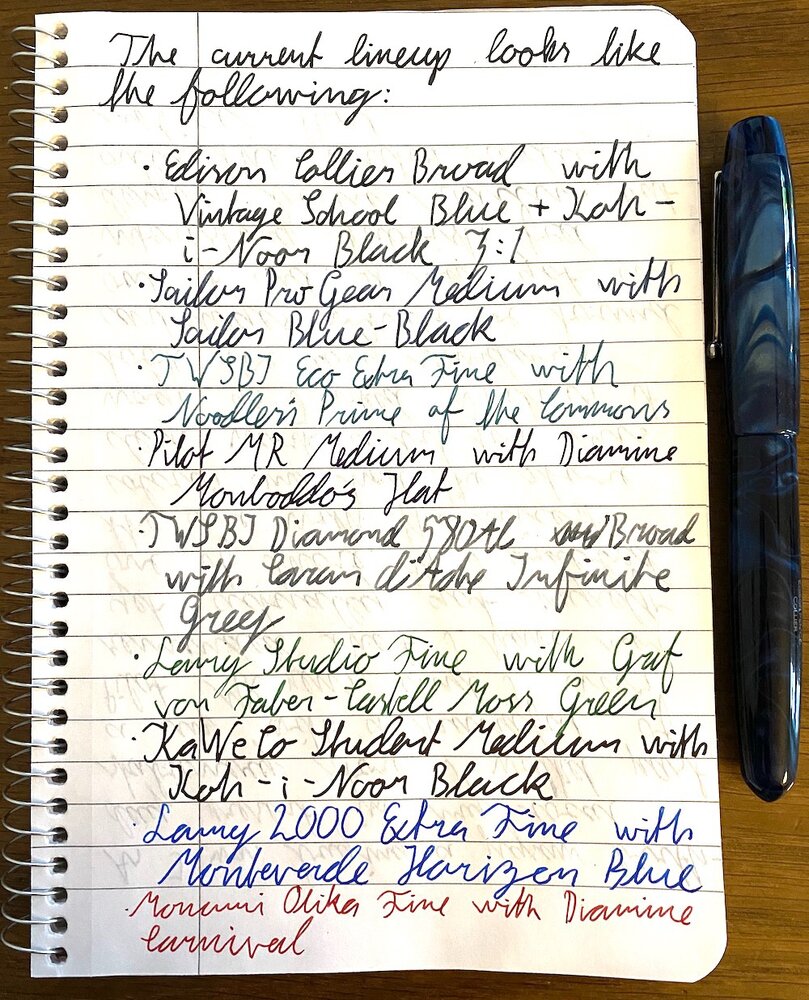 The current lineup looks like
the following:
· Edison Collier Broad with
Vintage School Blue + Koh-
i-Noor Black 3:1
· Sailor Pro Gear Medium with
Sailor Blue-Black
· TWSBI Eco Extra Fine with
Noodler's Prime of the Commons
· Pilot MR Medium with Diamine
Monboddo's Hat
· TWSBI Diamond 580AL Broad
with Caran d'Ache Infinite
Grey
· Lamy Studio Fine with Graf
von Faber-Castell Moss Green
· KaWeCo Student Medium with
Koh-i-Noor Black
· Lamy 2000 Extra Fine with
Monteverde Horizon Blue
· Monami Olika Fine with Diamine
Carnival
COLLIER